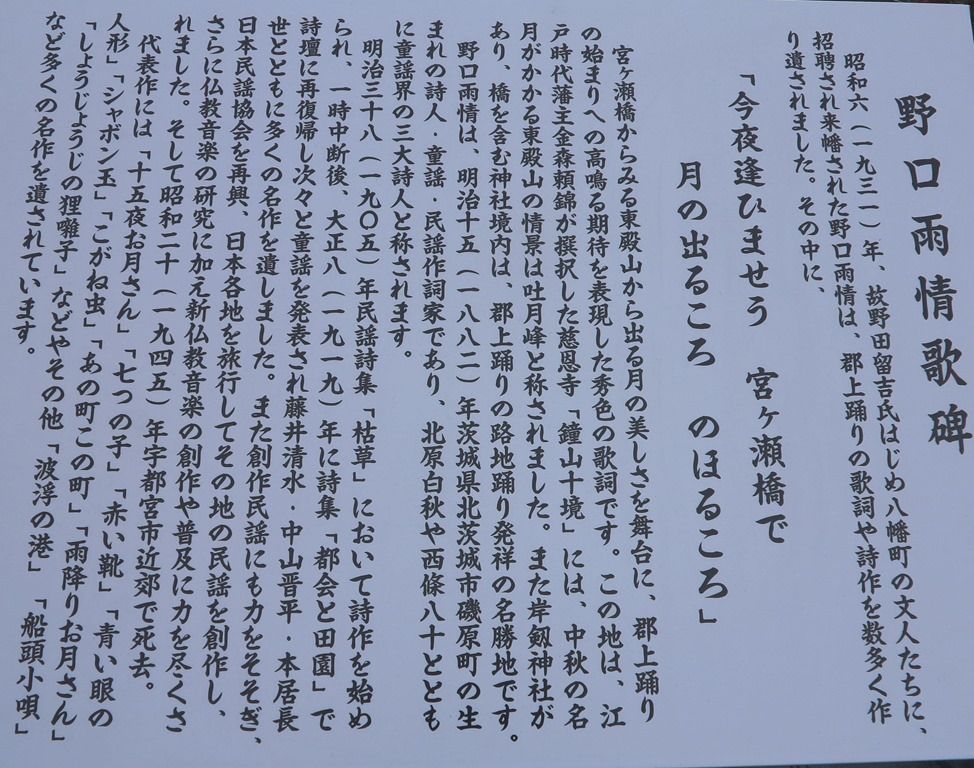 野口雨情歌碑
昭和六(一九三一)年、故野田留吉氏はじめ八幡町の文人たちに、
招聘され来幡された野口雨情は、郡上踊りの歌詞や詩作を数多く作
り遺されました。その中に、
「今夜逢ひませう 宮ヶ瀬橋で
月の出るころ のほるころ」
宮ヶ瀬橋からみる東殿山から出る月の美しさを舞台に、郡上踊り
の始まりへの高鳴る期待を表現した秀色の歌詞です。この地は、江
戸時代藩主金森頼錦が撰択した慈恩寺「鐘山十境」には、中秋の名
月がかかる東殿山の情景は吐月峰と称されました。また岸劔神社が
あり、橋を含む神社境内は、郡上踊りの路地踊り発祥の名勝地です。
野口雨情は、明治十五(一八八二)年茨城県北茨城市磯原町の生
まれの詩人・童謡・民謡作詞家であり、北原白秋や西條八十ととも
に童謡界の三大詩人と称されます。
明治三十八(一九〇五)年民謡詩集「枯草」において詩作を始め
られ、一時中断後、大正八(一九一九)年に詩集「都会と田園」で
詩壇に再復帰し次々と童謡を発表され藤井清水・中山晋平・本居長
世とともに多くの名作を遺しました。また創作民謡にも力をそそぎ、
日本民謡協会を再興、日本各地を旅行してその地の民謡を創作し、
さらに仏教音楽の研究に加え新仏教音楽の創作や普及に力を尽くさ
れました。そして昭和二十(一九四五)年宇都宮市近郊で死去。
代表作には「十五夜お月さん」「七つの子」「赤い靴」「青い眼の
人形」「シャボン玉」「こがね虫」「あの町この町」「雨降りお月さん」
「しょうじょうじの狸囃子」などやその他「波浮の港」「船頭小唄」
など多くの名作を遺されています。